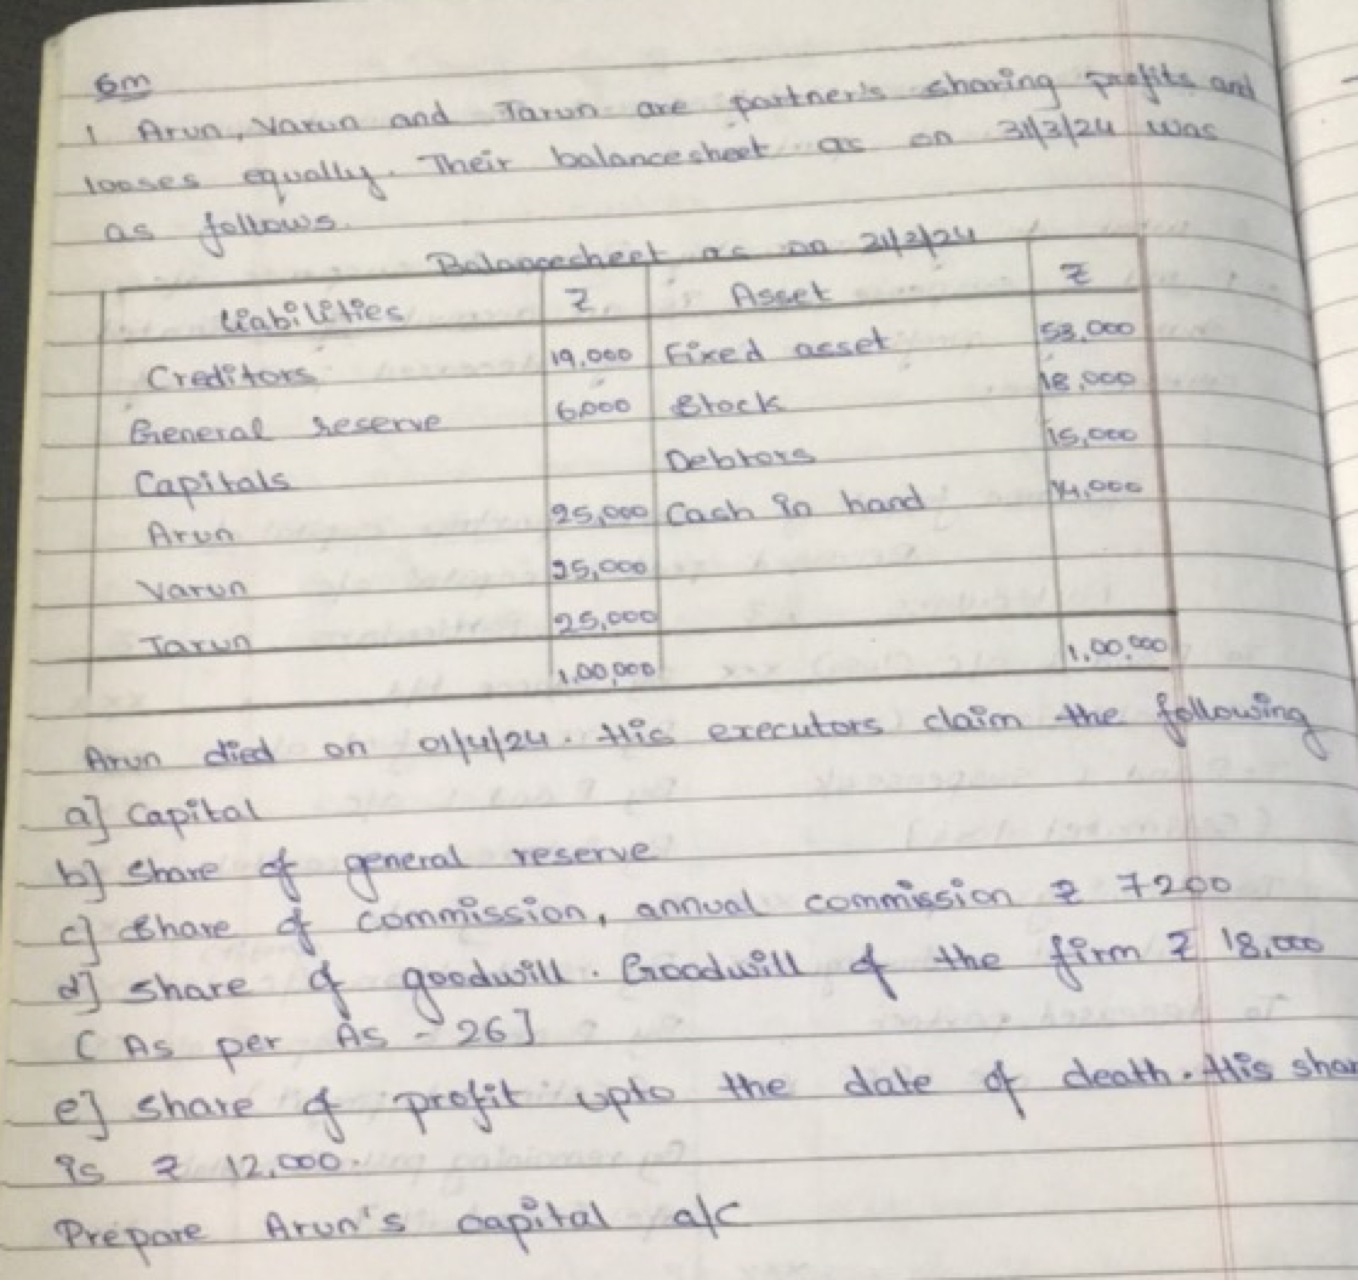 6m
1 Arun, Varun and Tarun are partner's sharing profits and
looses equally. Their balancesheet as on 31/3/24 was
as follows.
Balancesheet as on 31/3/24
Liabilities ₹ Asset ₹
Creditors 19,000 Fixed asset 53,000
General reserve 6,000 Stock 18,000
Capitals Debtors 15,000
Arun 25,000 Cash in hand 14,000
Varun 25,000
Tarun 25,000
1,00,000 1,00,000
Arun died on 01/4/24. His executors claim the following
a] Capital
b] Share of general reserve
c] Share of commission, annual commission ₹ 7200
d] Share of goodwill. Goodwill of the firm ₹ 18,000
( As per As - 26]
e] Share of profit upto the date of death. His shar
is ₹ 12,000.
Prepare Arun's capital a/c